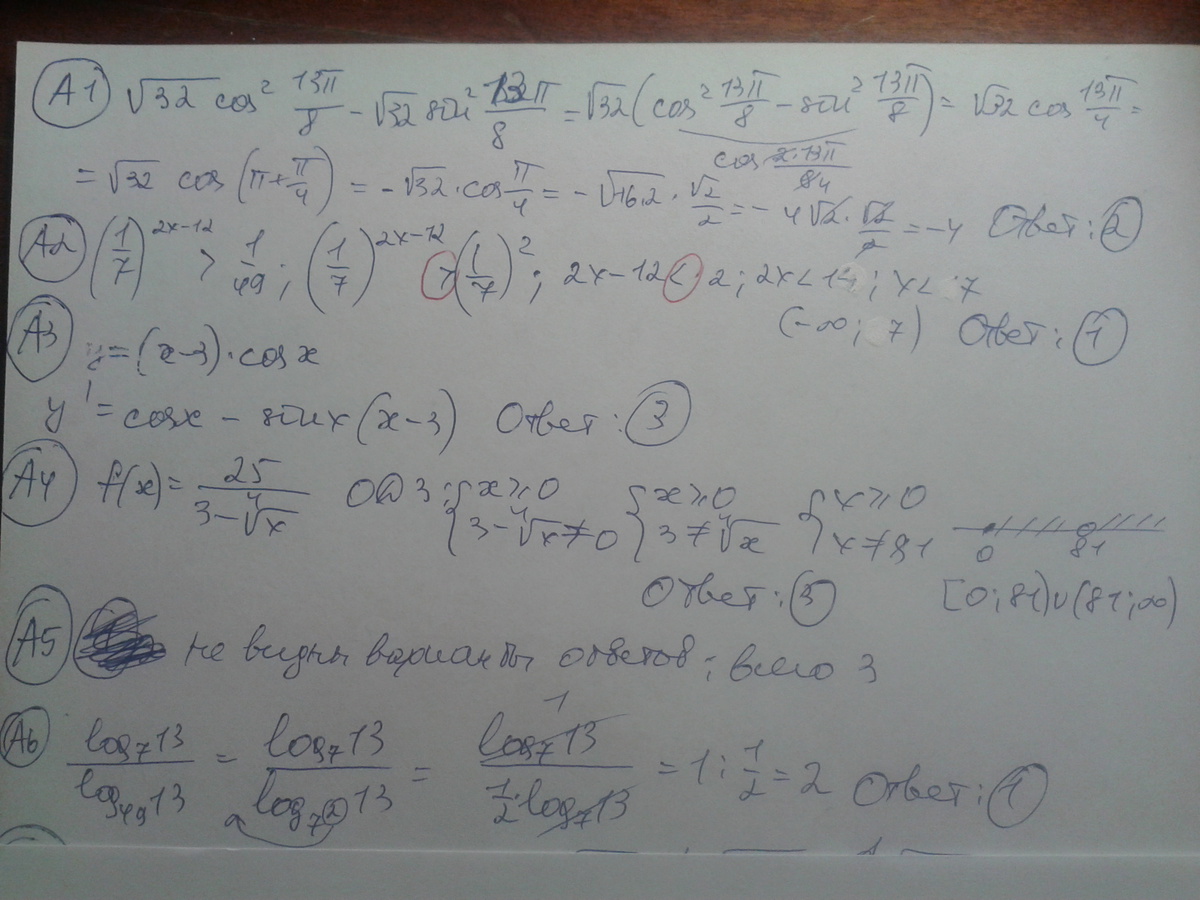 А1 √32 cos² 13π/8 − √32 sin² 13π/8 = √32 (cos² 13π/8 − sin² 13π/8) = √32 cos 13π/4 =
cos 2·13π/84
= √32 cos (π + π/4) = −√32 · cos π/4 = −√16·2 · √2/2 = −4√2 · √2/2 = −4 Ответ: 2
А2 (1/7)^2x−12 > 1/49 ; (1/7)^2x−12 > (1/7)² ; 2x−12 < 2 ; 2x < 14 ; x < 7
(−∞; 7) Ответ: 1
А3 y = (x−3)·cosx
y' = cosx − sinx (x−3) Ответ: 3
А4 f(x) = 25/(3−⁴√x) ОДЗ: { x ≥ 0 { x ≥ 0 { x ≥ 0
{ 3−⁴√x ≠ 0 { 3 ≠ ⁴√x { x ≠ 81 0 81
Ответ: 3 [0; 81)∪(81; ∞)
А5 не видны варианты ответов; всего 3
А6 log₇13/log₄₉13 = log₇13/log₇²13 = log₇13/(1/2·log₇13) = 1 : 1/2 = 2 Ответ: 1